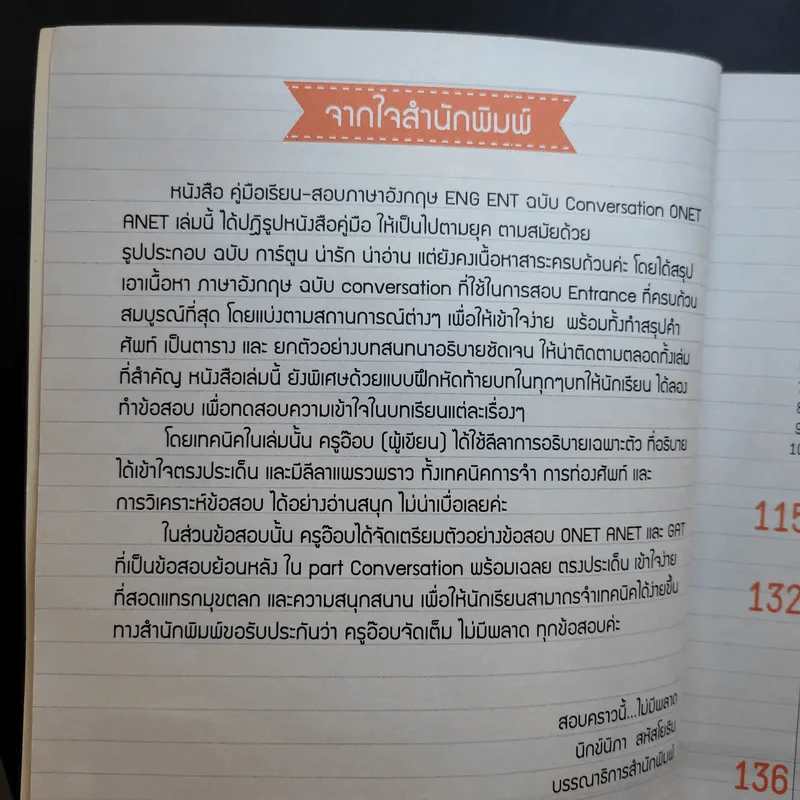 จากใจสำนักพิมพ์
หนังสือ คู่มือเรียน-สอบภาษาอังกฤษ ENG ENT ฉบับ Conversation ONET
ANET เล่มนี้ ได้ปฏิรูปหนังสือคู่มือ ให้เป็นไปตามยุค ตามสมัยด้วย
รูปประกอบ ฉบับ การ์ตูน น่ารัก น่าอ่าน แต่ยังคงเนื้อหาสาระครบถ้วนค่ะ โดยได้สรุป
เอาเนื้อหา ภาษาอังกฤษ ฉบับ conversation ที่ใช้ในการสอบ Entrance ที่ครบถ้วน
สมบูรณ์ที่สุด โดยแบ่งตามสถานการณ์ต่างๆ เพื่อให้เข้าใจง่าย พร้อมทั้งทำสรุปคำ
ศัพท์ เป็นตาราง และ ยกตัวอย่างบทสนทนาอธิบายชัดเจน ให้น่าติดตามตลอดทั้งเล่ม
ที่สำคัญ หนังสือเล่มนี้ ยังพิเศษด้วยแบบฝึกหัดท้ายบทในทุกๆบทให้นักเรียน ได้ลอง
ทำข้อสอบ เพื่อทดสอบความเข้าใจในบทเรียนแต่ละเรื่องๆ
โดยเทคนิคในเล่มนั้น ครูอ๊อบ (ผู้เขียน) ได้ใช้ลีลาการอธิบายเฉพาะตัว ที่อธิบาย
ได้เข้าใจตรงประเด็น และมีลีลาแพรวพราว ทั้งเทคนิคการจำ การท่องศัพท์ และ
การวิเคราะห์ข้อสอบ ได้อย่างอ่านสนุก ไม่น่าเบื่อเลยค่ะ
ในส่วนข้อสอบนั้น ครูอ๊อบได้จัดเตรียมตัวอย่างข้อสอบ ONET ANET และ GAT
ที่เป็นข้อสอบย้อนหลัง ใน part Conversation พร้อมเฉลย ตรงประเด็น เข้าใจง่าย
ที่สอดแทรกมุขตลก และความสนุกสนาน เพื่อให้นักเรียนสามารถจำเทคนิคได้ง่ายขึ้น
ทางสำนักพิมพ์ขอรับประกันว่า ครูอ๊อบจัดเต็ม ไม่มีพลาด ทุกข้อสอบค่ะ
สอบคราวนี้...ไม่มีพลาด
นิกข์นิภา สหัสโยธิน
บรรณาธิการสำนักพิมพ์
10
115
132
136